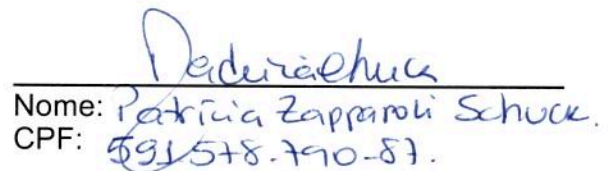 Nome: Patrícia Zapparoli Schuck.
CPF: 591578.790-87.